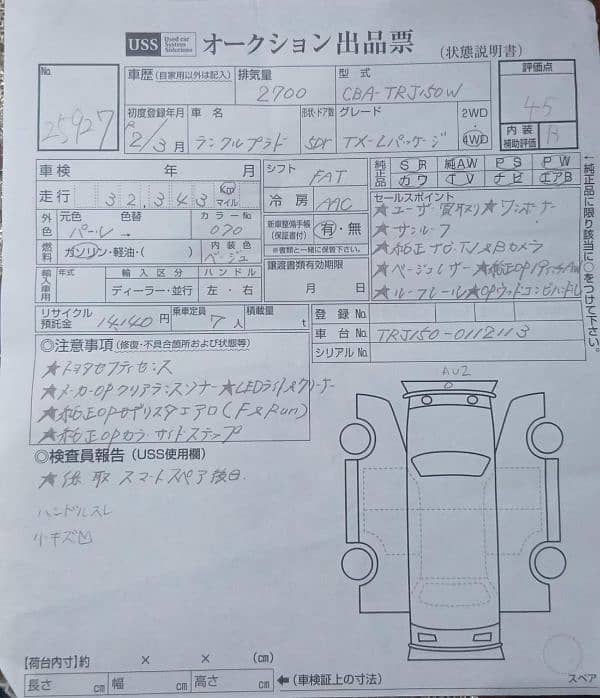 USS Used car System Solutions オークション出品票 (状態説明書)
No. 25927
車歴(自家用以外は記入) 排気量 2700 型式 CBA-TRJ150W
評価点 4.5
初度登録年月 R 2/3月 車名 ランクルプラド 形状・ドア数 5DR グレード TX-Lパッケージ 2WD・4WD
内装補助評価 B
車検 年 月 シフト FAT 純正品 SR 純AW PS PW
カワ TV ナビ エアB
走行 32,343 km マイル 冷房 AAC
セールスポイント
★ユーザ買取り★ワンオーナー
外色 元色 パール 色替 → カラーNo. 070 新車整備手帳(保証書付) 有・無
★サンルーフ
※書類と一緒に保管下さい。
燃料 ガソリン・軽油・( ) 内装色 ベージュ
★純正ナビTV&Bカメラ
輸入車用 年式 輸入区分 ハンドル 譲渡書類有効期限
ディーラー・並行 左・右 月 日
★ベージュレザー★純正OP
★ルーフレール★OPウッドコンビハンドル
←純正品に限り該当に○をつけて下さい。
リサイクル預託金 14,140円 乗車定員 7人 積載量 t
登録No.
車台No. TRJ150-0112113
シリアルNo.
◎注意事項(修復・不具合箇所および状態等)
★トヨタセーフティセンス
★メーカーOPクリアランスソナー★LEDライト&クリーナー
★純正OPモデリスタエアロ(F&Run)
★純正OPカラサイドステップ
AU2
◎検査員報告(USS使用欄)
★後取 スマートスペア後日
ハンドルスレ
小キズ凹
【荷台内寸】約 × × (cm)
長さ cm 幅 cm 高さ cm ←(車検証上の寸法)
スペア